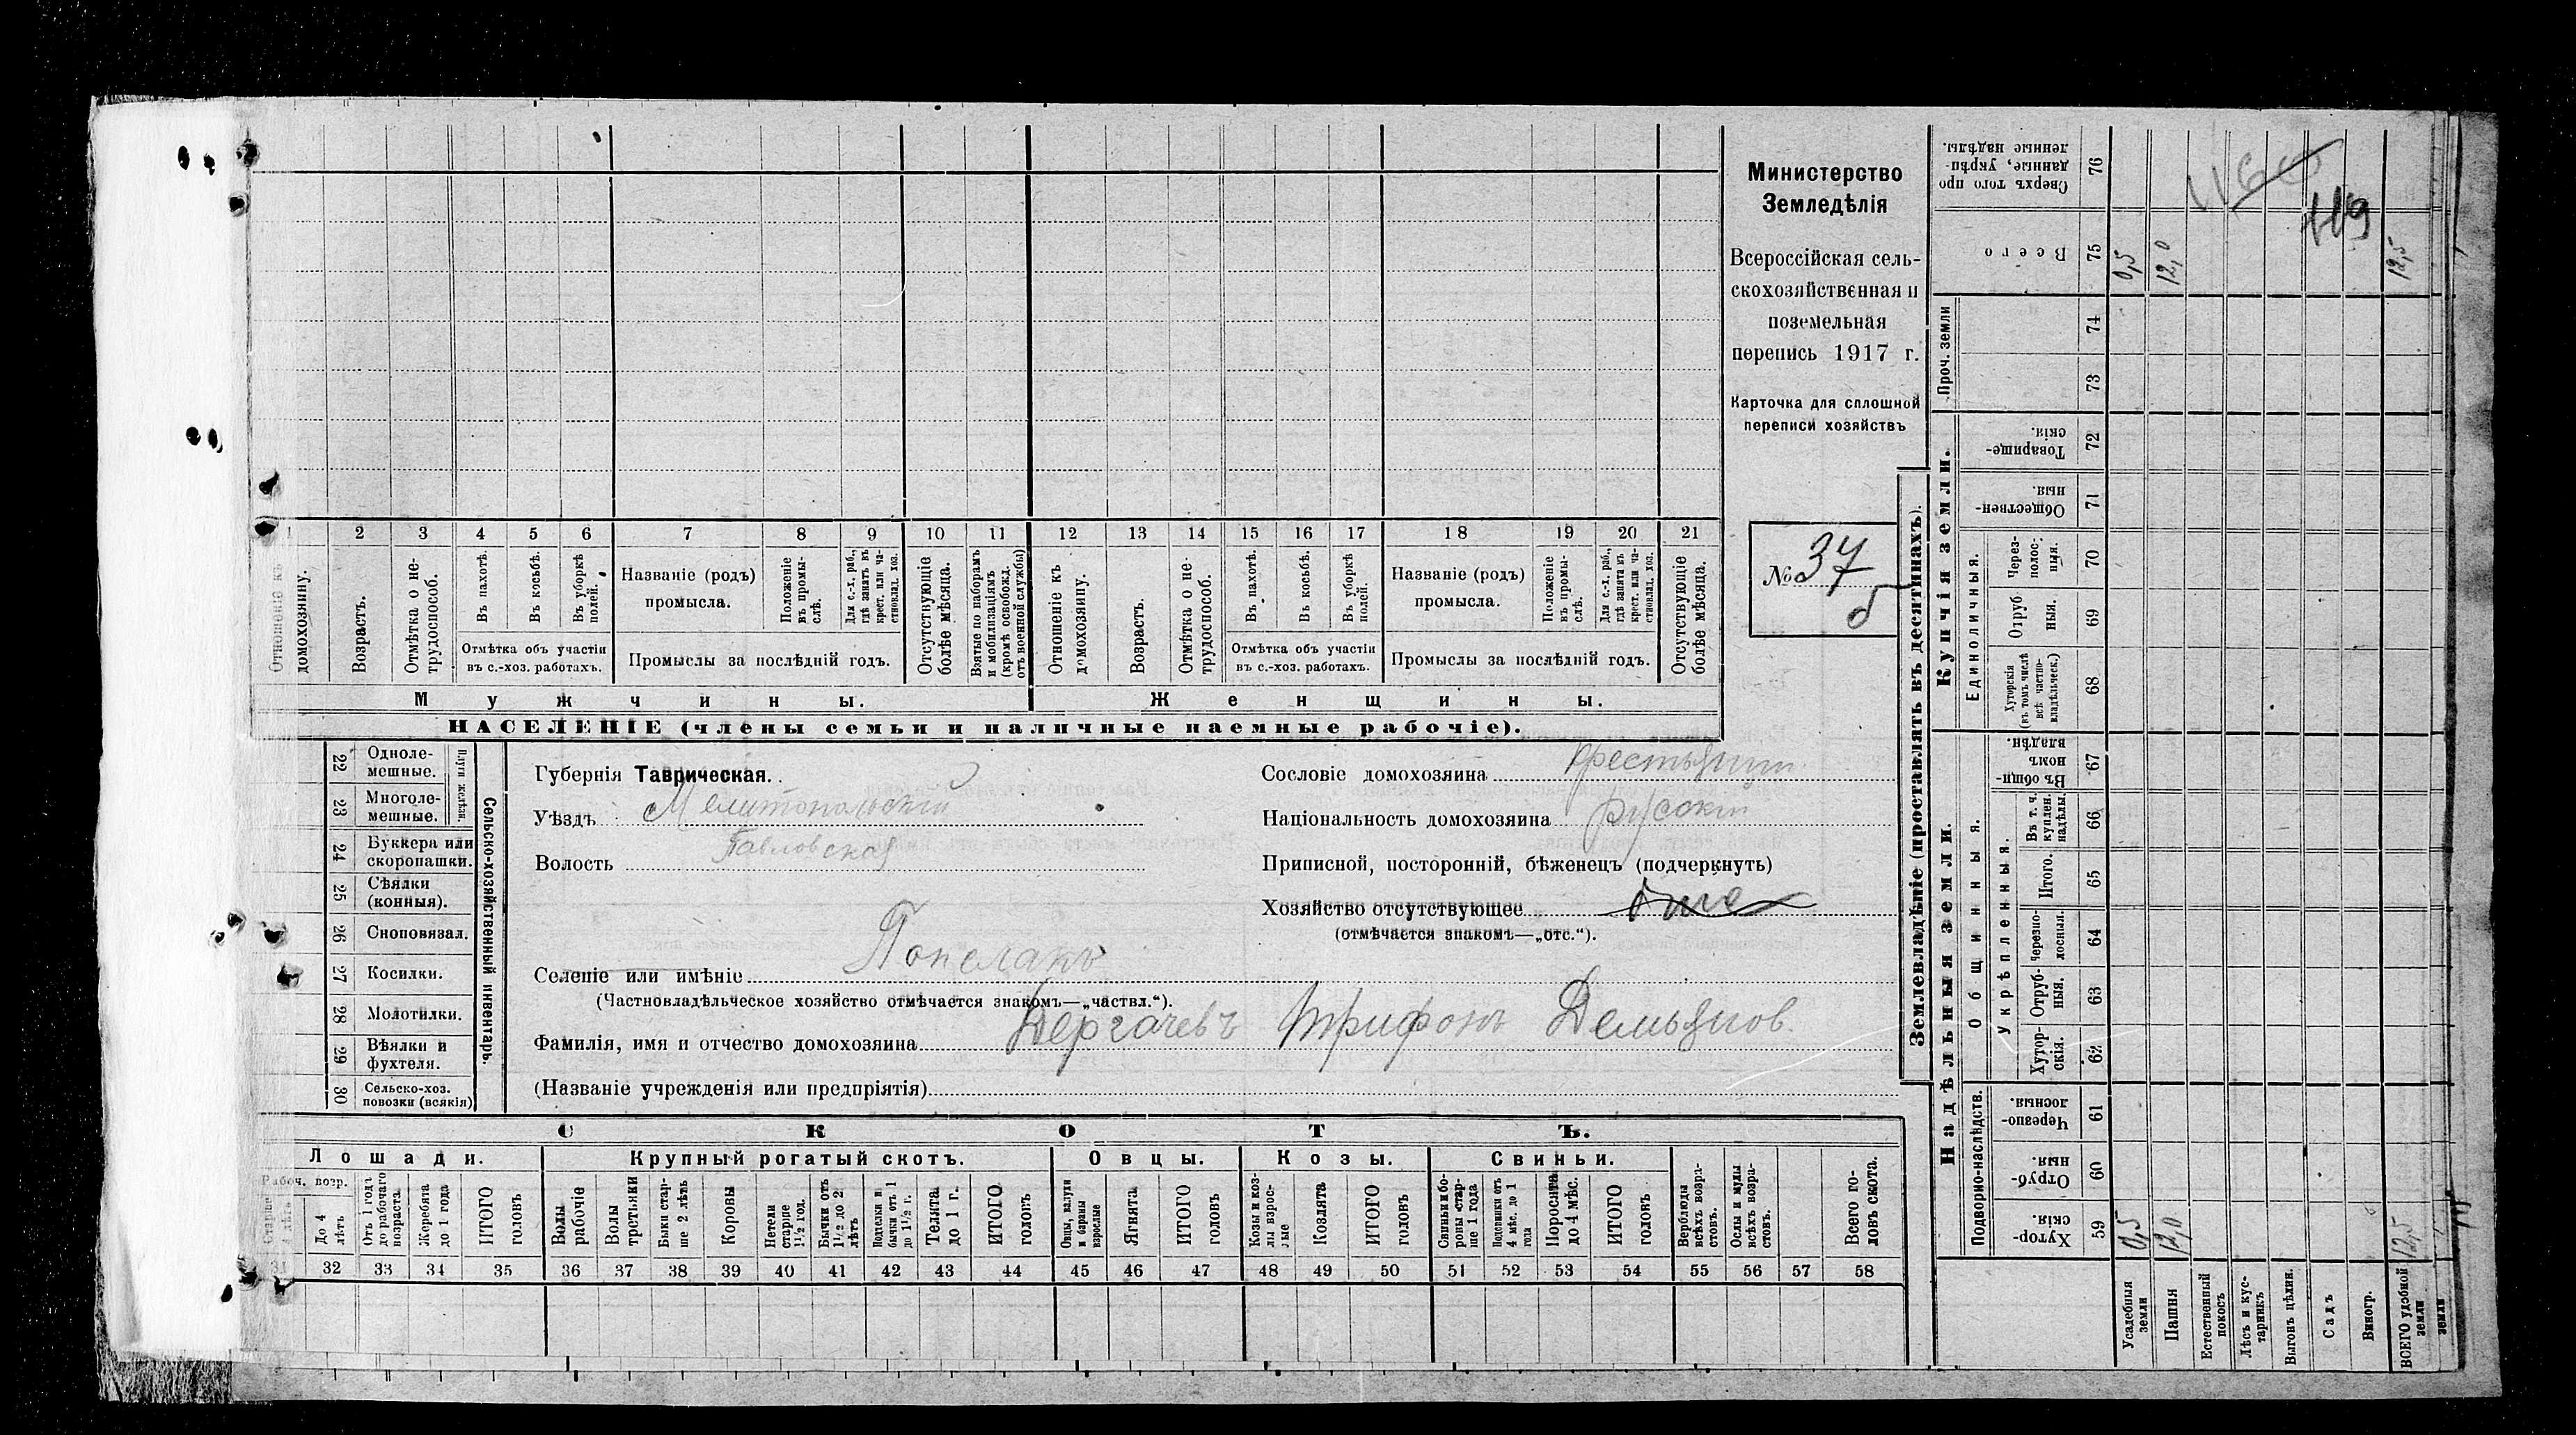 Министерство
Земледѣлія
Всероссійская сель-
скохозяйственная и
поземельная
перепись 1917 г.
Карточка для сплошной
переписи хозяйствъ
№ 37
б
1 2 3 4 5 6 7 8 9 10 11 12 13 14 15 16 17 18 19 20 21
Отношеніе къ домохозяину.
Возрастъ.
Отмѣтка о не-трудоспособ.
Въ пахотѣ.
Въ косьбѣ.
Въ уборкѣ полей.
Отмѣтка объ участіи
въ с.-хоз. работахъ.
Названіе (родъ)
промысла.
Положеніе въ промы-слѣ.
Для с.-х. раб., гдѣ занятъ въ крест. или ча-стновлад. хоз.
Промыслы за послѣдній годъ.
Отсутствующіе болѣе мѣсяца.
Взятые по наборамъ и мобилизаціямъ (кромѣ освобожд. отъ военной службы)
Отношеніе къ домохозяину.
Возрастъ.
Отмѣтка о не-трудоспособ.
Въ пахотѣ.
Въ косьбѣ.
Въ уборкѣ полей.
Отмѣтка объ участіи
въ с.-хоз. работахъ.
Названіе (родъ)
промысла.
Положеніе въ промы-слѣ.
Для с.-х. раб., гдѣ занята въ крест. или ча-стновлад. хоз.
Промыслы за послѣдній годъ.
Отсутствующіе болѣе мѣсяца.
Мужчины.
Женщины.
НАСЕЛЕНІЕ (члены семьи и наличные наемные рабочіе).
22 Одноле-мешные.
23 Многоле-мешные.
Плуги желѣзн.
24 Буккера или скоропашки.
25 Сѣялки (конныя).
26 Сноповязал.
27 Косилки.
28 Молотилки.
29 Вѣялки и фухтеля.
30 Сельско-хоз. повозки (всякія)
Сельско-хозяйственный инвентарь.
Губернія Таврическая.
Уѣздъ Мелитопольскій
Волость Павловская
Селеніе или имѣніе
(Частновладѣльческое хозяйство отмѣчается знакомъ—„частвл.“).
Фамилія, имя и отчество домохозяина Дергачевъ Трифонъ Демьянов.
(Названіе учрежденія или предпріятія)
Сословіе домохозяина крестьянин
Національность домохозяина русскій
Приписной, посторонній, бѣженецъ (подчеркнуть)
Хозяйство отсутствующее
(отмѣчается знакомъ—„отс.“).
СКОТЪ.
Лошади.
Крупный рогатый скотъ.
Овцы.
Козы.
Свиньи.
Рабоч. возр.
Старше 4 лѣтъ
До 4 лѣтъ
Отъ 1 годъ до рабочаго возраста
Жеребята до 1 года
ИТОГО головъ
Волы рабочіе
Волы третьяки
Быки стар-ше 2 лѣтъ
Коровы
Нетели старше 1½ год.
Бычки отъ 1½ до 2 лѣтъ
Подтелки и бычки отъ 1 до 1½ г.
Телята до 1 г.
ИТОГО головъ
Овцы, валухи и бараны взрослые
Ягнята
ИТОГО головъ
Козы и коз-лы взрос-лые
Козлята
ИТОГО головъ
Свиньи и бо-ровы стар-ше 1 года
Подсвинки отъ 4 мѣс. до 1 года
Поросята до 4 мѣс.
ИТОГО головъ
Верблюды всѣхъ возра-стовъ.
Ослы и мулы всѣхъ возра-стовъ.
Всего го-ловъ скота.
31 32 33 34 35 36 37 38 39 40 41 42 43 44 45 46 47 48 49 50 51 52 53 54 55 56 57 58
Землевладѣніе (проставлять въ десятинахъ).
Надѣльныя земли.
Купчія земли.
Проч. земли
Подворно-наслѣдств.
Общинныя.
Укрѣпленныя.
Единоличныя.
Хутор-скія. 59
Отруб-ныя. 60
Черезпо-лосныя. 61
Хутор-скія. 62
Отруб-ныя. 63
Черезпо-лосныя. 64
Итого. 65
Въ т. ч. куплен. надѣлы. 66
Въ общи-номъ владѣн. 67
Хуторскія (въ томъ числѣ всѣ частно-владѣльческ.) 68
Отруб ныя. 69
Через-полос-ныя. 70
Обществен-ныя. 71
Товарище-скія. 72
73
74
Всего 75
Сверхъ того про данные, укрѣп-ленные надѣлы. 76
Усадебныя земли 0,5 0,5
Пашня 12,0 12,0
Естественный покосъ
Лѣсъ и кус-тарникъ
Выгонъ цѣлин.
Садъ
Виногр.
ВСЕГО удобной земли 12,5 12,5
земли
119